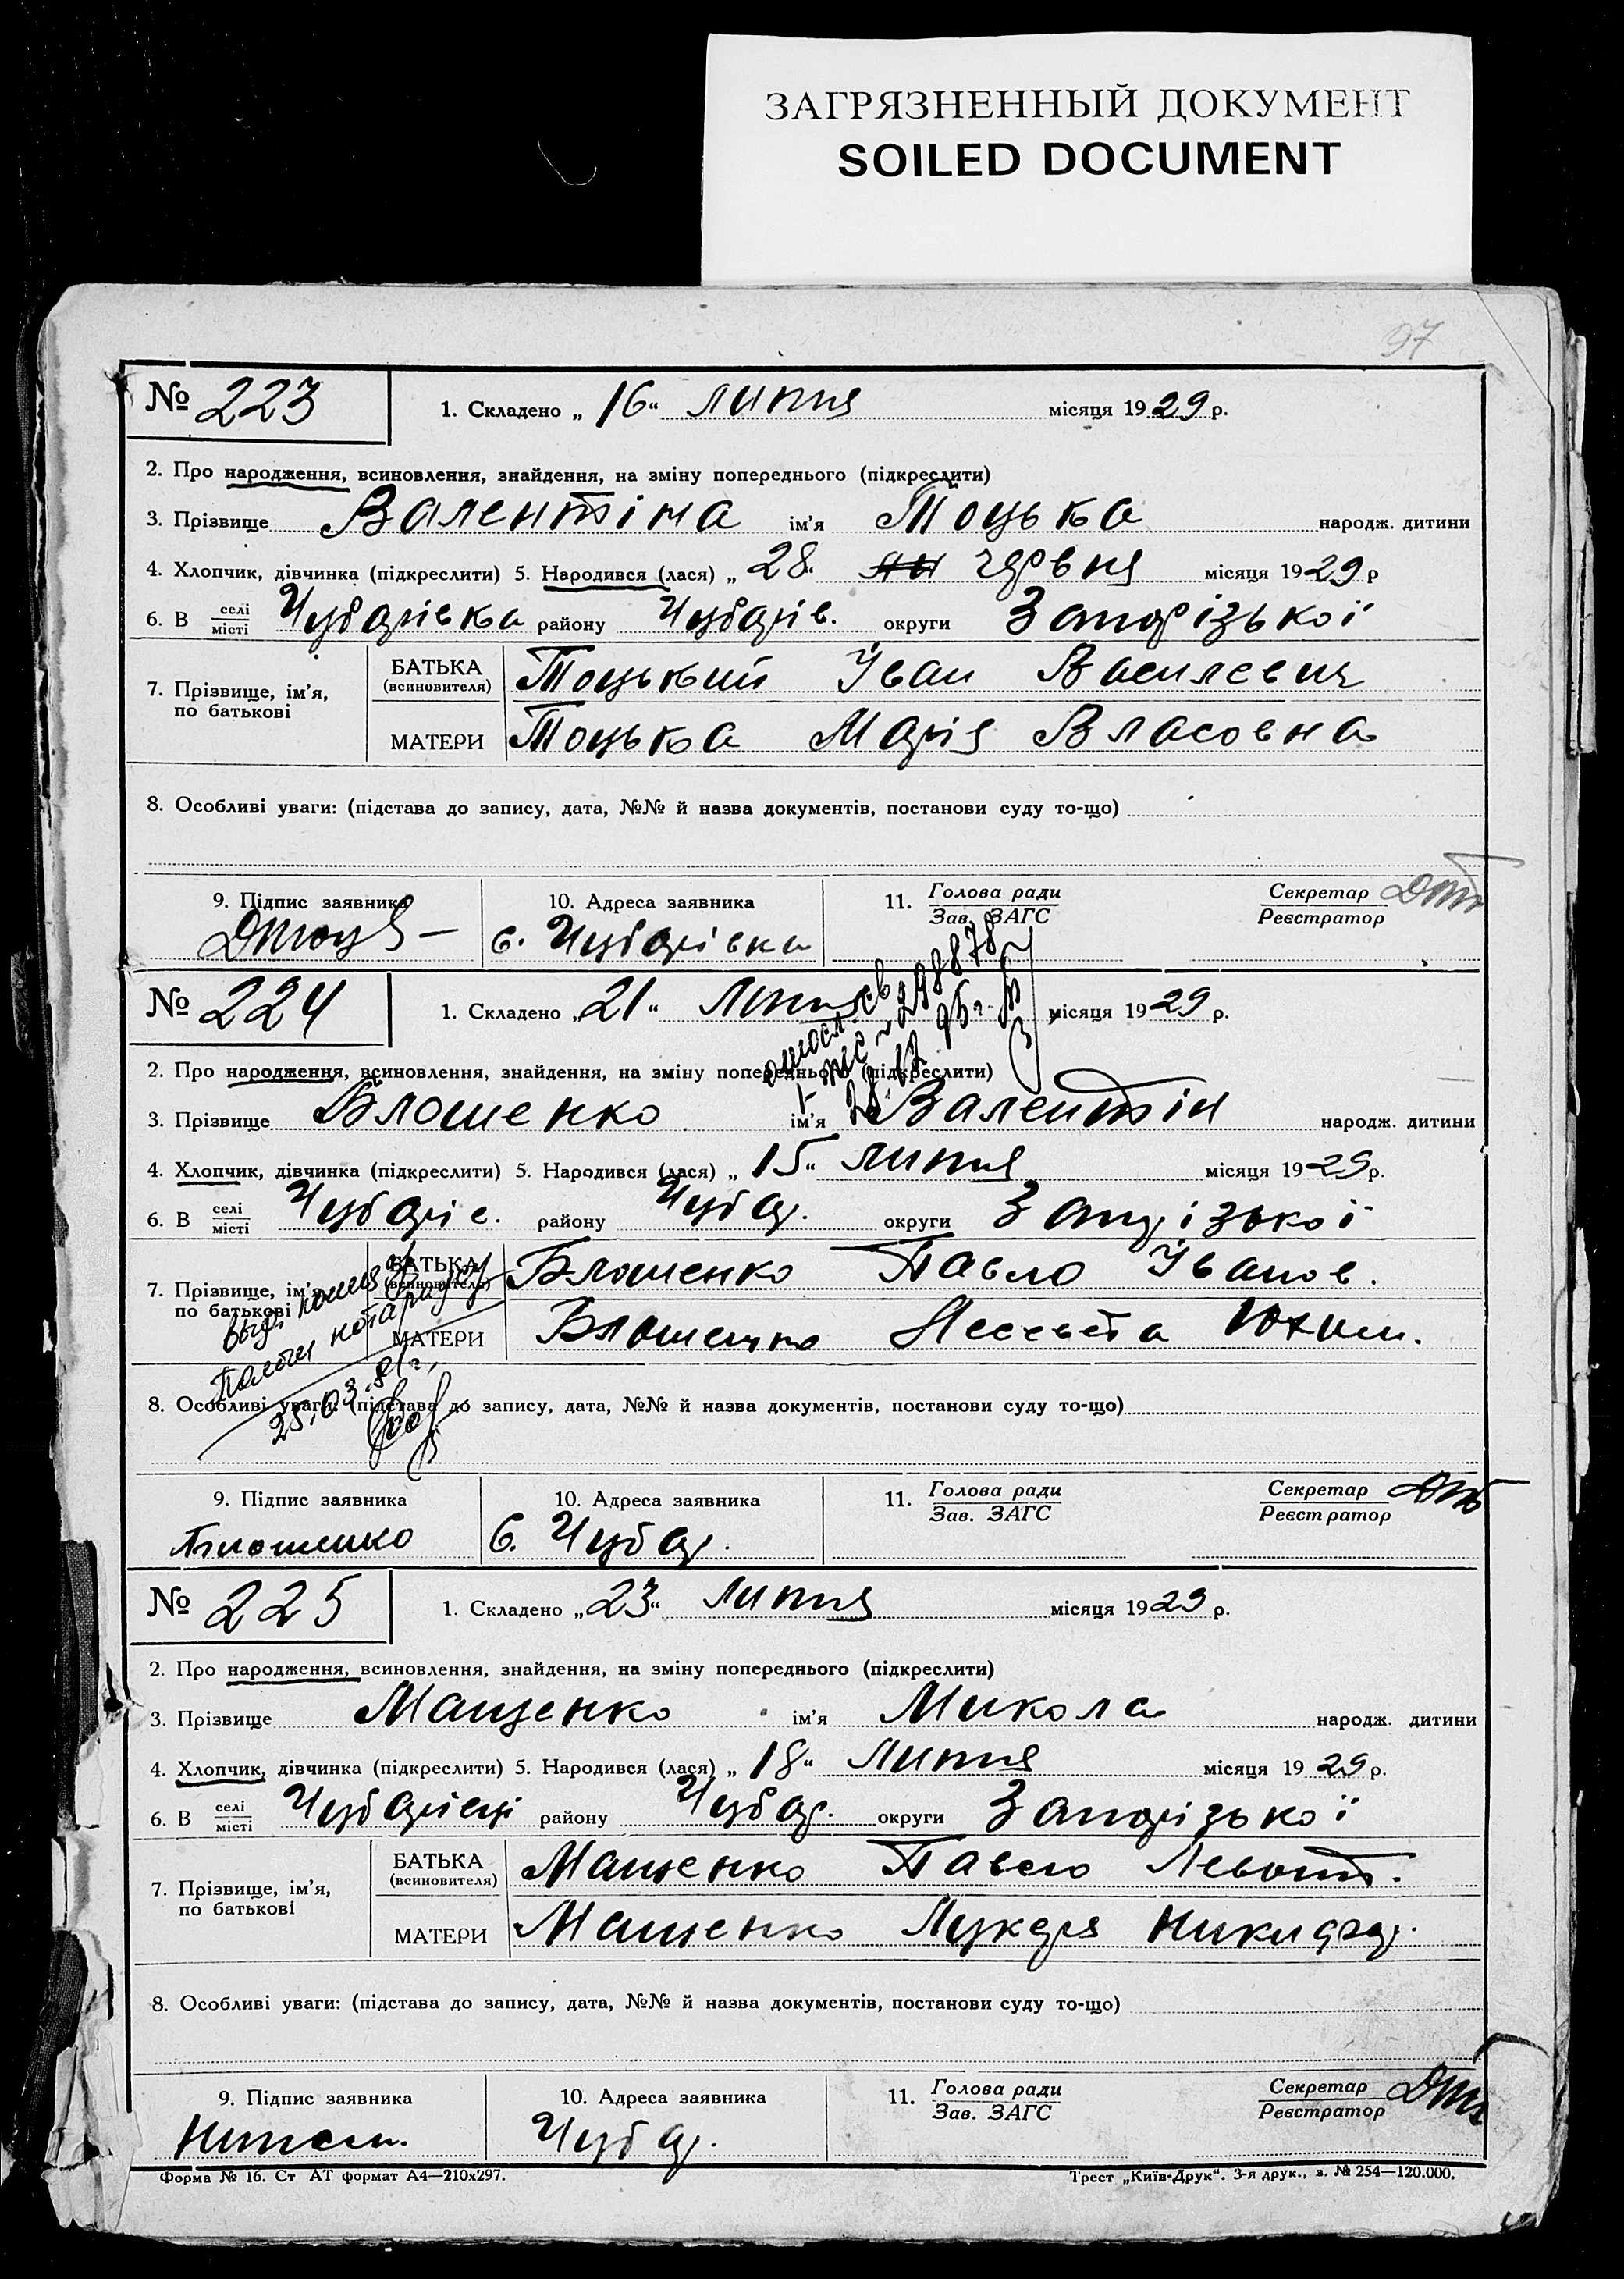 ЗАГРЯЗНЕННЫЙ ДОКУМЕНТ
SOILED DOCUMENT
97
№ 223 1. Складено „ 16 “ липня місяця 1929 р.
2. Про народження, всиновлення, знайдення, на зміну попереднього (підкреслити)
3. Прізвище Валентіна ім'я Тоцька народж. дитини
4. Хлопчик, дівчинка (підкреслити) 5. Народився (лася) „ 28 “ червня місяця 1929 р
6. В селі/місті Чубарівка району Чубарів. округи Запорізької
7. Прізвище, ім'я, по батькові
БАТЬКА (всиновителя) Тоцький Іван Василевич
МАТЕРИ Тоцька Марія Власовна
8. Особливі уваги: (підстава до запису, дата, №№ й назва документів, постанови суду то-що)
9. Підпис заявника 10. Адреса заявника 11. Голова ради/Зав. ЗАГС Секретар/Реєстратор
с. Чубарівка
№ 224 1. Складено „ 21 “ Липня місяця 1929 р.
298878
28.12.95г.
2. Про народження, всиновлення, знайдення, на зміну попереднього (підкреслити)
3. Прізвище Блошенко ім'я Валентін народж. дитини
4. Хлопчик, дівчинка (підкреслити) 5. Народився (лася) „ 15 “ липня місяця 1929 р.
6. В селі/місті Чубарів. району Чубар. округи Запорізької
7. Прізвище, ім'я, по батькові
БАТЬКА (всиновителя) Блошенко Павло Іванов.
МАТЕРИ Блошенко Юхим.
25.03.81г.
8. Особливі уваги: (підстава до запису, дата, №№ й назва документів, постанови суду то-що)
9. Підпис заявника 10. Адреса заявника 11. Голова ради/Зав. ЗАГС Секретар/Реєстратор
Блошенко с. Чубар.
№ 225 1. Складено „ 23 “ липня місяця 1929 р.
2. Про народження, всиновлення, знайдення, на зміну попереднього (підкреслити)
3. Прізвище Мащенко ім'я Микола народж. дитини
4. Хлопчик, дівчинка (підкреслити) 5. Народився (лася) „ 18 “ Липня місяця 1929 р.
6. В селі/місті Чубарівці району Чубар. округи Запорізької
7. Прізвище, ім'я, по батькові
БАТЬКА (всиновителя) Мащенко Павло
МАТЕРИ Мащенко Лукеря
8. Особливі уваги: (підстава до запису, дата, №№ й назва документів, постанови суду то-що)
9. Підпис заявника 10. Адреса заявника 11. Голова ради/Зав. ЗАГС Секретар/Реєстратор
Чубар.
Форма № 16. Ст АТ формат А4—210х297. Трест „Київ-Друк“. 3-я друк., з. № 254—120.000.